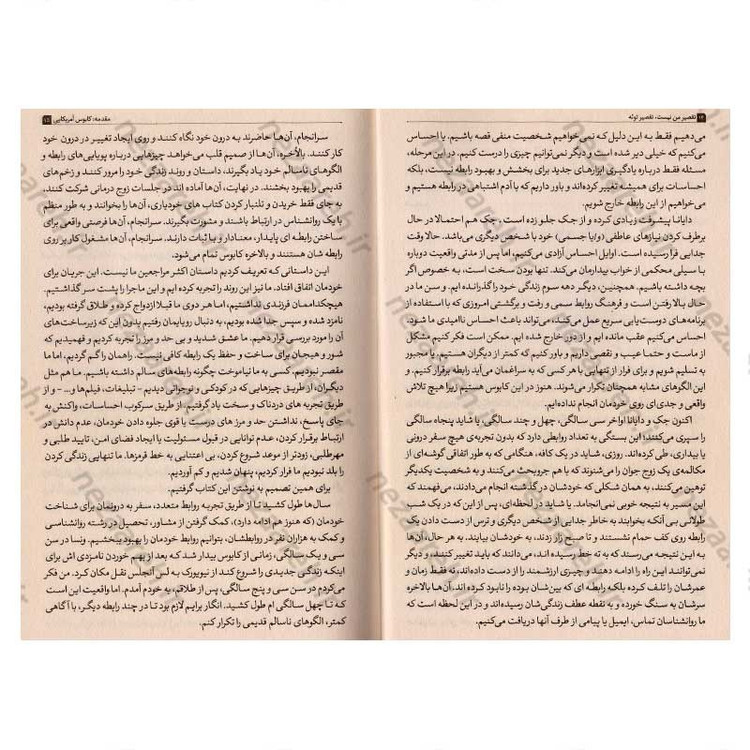 ۱۴ تقصیر من نیست، تقصیر توئه
می‌دهیم فقط به این دلیل که نمی‌خواهیم شخصیت منفی قصه باشیم. یا احساس
می‌کنیم که خیلی دیر شده است و دیگر نمی‌توانیم چیزی را درست کنیم. در این مرحله،
مسئله فقط درباره یادگیری ابزارهای جدید برای بخشش و بهبود رابطه نیست، بلکه
احساسات برای همیشه تغییر کرده‌اند و باور داریم که با آدم اشتباهی در رابطه هستیم و
می‌خواهیم از این رابطه خارج شویم.
دایانا پیشرفت زیادی کرده و از جک جلو زده است. جک هم احتمالا در حال
برطرف کردن نیازهای عاطفی (و/یا جسمی) خود با شخص دیگری می‌باشد. حالا وقت
جدایی فرا رسیده است. اوایل احساس آزادی می‌کنیم، اما پس از مدتی واقعیت دوباره
با سیلی محکمی از خواب بیدارمان می‌کند. تنها بودن سخت است، به خصوص اگر
بچه داشته باشیم. همچنین، دیگر دهه سوم زندگی خود را گذرانده‌ایم. و سن ما در
حال بالا رفتن است و فرهنگ روابط سمی و رفت و برگشتی امروزی که با استفاده از
برنامه‌های دوست‌یابی سریع عمل می‌کند، می‌تواند باعث احساس ناامیدی ما شود.
احساس می‌کنیم عقب مانده ایم و از دور خارج شده ایم. ممکن است فکر کنیم مشکل
از ماست و حتما عیب و نقصی داریم و باور کنیم که کمتر از دیگران هستیم. یا مجبور
به تسلیم شویم و برای فرار از تنهایی با هر کسی که به سراغمان می‌آید رابطه برقرار کنیم. و
این الگوهای مشابه همچنان تکرار می‌شوند. هنوز در این کابوس هستیم زیرا هیچ تلاش
واقعی و جدی‌ای روی خودمان انجام نداده‌ایم.
اکنون جک و دایانا اواخر سی سالگی، چهل و چند سالگی، یا شاید پنجاه سالگی
را سپری می‌کنند؛ این بستگی به تعداد روابطی دارد که بدون تجربه‌ی هیچ سفر درونی
یا بیداری، طی کرده‌اند. روزی، شاید در یک کافه، هنگامی که به طور اتفاقی گوشه‌ای از
مکالمه‌ی یک زوج جوان را می‌شنوند که با هم جروبحث می‌کنند و به شخصیت یکدیگر
توهین می‌کنند، به همان شکلی که خودشان در گذشته انجام می‌دادند، می‌فهمند که
این مسیر به نتیجه خوبی نمی‌انجامد. یا شاید در لحظه‌ای، پس از این که در یک شب
طولانی بی آنکه بخوابند به خاطر جدایی از شخص دیگری و ترس از دست دادن یک
رابطه روی کف حمام نشستند و تا صبح زار زدند، به خودشان بیایند. به هر حال، آن‌ها
به این نتیجه می‌رسند که به ته خط رسیده اند. می‌دانند که باید تغییر کنند، و دیگر
نمی‌توانند این راه را ادامه دهند و چیزی ارزشمند را از دست داده‌اند، نه فقط زمان و
عمرشان را تلف کرده بلکه رابطه ای که بین‌شان بوده را نابود کرده اند. آن ها بالاخره
سرشان به سنگ خورده و به نقطه عطف زندگی‌شان رسیده‌اند و در این لحظه است که
ما روانشناسان تماس، ایمیل یا پیامی از طرف آنها دریافت می‌کنیم.
مقدمه: کابوس آمریکایی ۱۵
سرانجام، آن‌ها حاضرند به درون خود نگاه کنند و روی ایجاد تغییر در درون خود
کار کنند. بالأخره، آن‌ها از صمیم قلب می‌خواهد چیزهایی درباره پویایی‌های رابطه و
الگوهای ناسالم خود یاد بگیرند، داستان و روند زندگی خود را مرور کنند و زخم‌های
قدیمی را بهبود بخشند. در نهایت، آن‌ها آماده اند در جلسات زوج درمانی شرکت کنند،
به جای فقط خریدن و تلنبار کردن کتاب های خودیاری، آن‌ها را بخوانند و به طور منظم
با یک روانشناس در ارتباط باشند و مشورت بگیرند. سرانجام، آن‌ها فرصتی واقعی برای
ساختن رابطه ای پایدار، معنادار و با ثبات دارند. سرانجام، آن‌ها مشغول کار بر روی
رابطه شان هستند و بالاخره کابوس تمام می‌شود.
این داستانی که تعریف کردیم داستان اکثر مراجعین ما نیست. این جریان برای
خودمان اتفاق افتاد. ما نیز این روند را تجربه کرده ایم و این ماجرا را پشت سر گذاشتیم.
هیچکداممان فرزندی نداشتیم، اما هر دوی ما قبلا ازدواج کرده و طلاق گرفته بودیم،
نامزد شده و سپس جدا شده بودیم، به دنبال رویایمان رفتیم بدون این که زیرساخت‌های
آن را مورد بررسی قرار دهیم. ما عشق شدید و بی حد و مرز را تجربه کردیم و فهمیدیم که
شور و هیجان برای ساخت و حفظ یک رابطه کافی نیست. راهمان را گم کردیم، اما ما
مقصر نبودیم. کسی به ما نیاموخت چگونه رابطه‌های سالم داشته باشیم. ما هم مثل
دیگران، از طریق چیزهایی که در کودکی و نوجوانی دیدیم – تبلیغات، فیلم‌ها و... – و از
طریق تجربه های دردناک و سخت یاد گرفتیم. از طریق سرکوب احساسات، واکنش به
جای پاسخ، نداشتن حد و مرز های درست یا قوی جلوه دادن خودمان، عدم دانش در
ارتباط برقرار کردن، عدم توانایی در قبول مسئولیت یا ایجاد فضای امن، تایید طلبی و
مهرطلبی، زودتر از موعد شروع کردن، بی اعتنایی به خط قرمزها. ما تنهایی زندگی کردن
را بلد نبودیم ما فرار کردیم، پنهان شدیم و کم آوردیم.
برای همین تصمیم به نوشتن این کتاب گرفتیم.
سال‌ها طول کشید تا از طریق تجربه روابط متعدد، سفر به درونمان برای شناخت
خودمان (که هنوز هم ادامه دارد)، کمک گرفتن از مشاور، تحصیل در رشته روانشناسی
و کمک به هزاران نفر در روابطشان، بتوانیم روابط خودمان را بهبود ببخشیم. ونسا در سن
سی و یک سالگی، زمانی از کابوس بیدار شد که بعد از بهم خوردن نامزدی اش برای
اینکه زندگی جدیدی را شروع کند از نیویورک به لس آنجلس نقل مکان کرد. من فکر
می‌کردم در سن سی و پنج سالگی، پس از طلاقم، به خودم آمدم. اما واقعیت این است
که تا چهل سالگی ام طول کشید. انگار برایم لازم بود تا در چند رابطه دیگر، با آگاهی
کمتر، الگوهای ناسالم قدیمی را تکرار کنم.